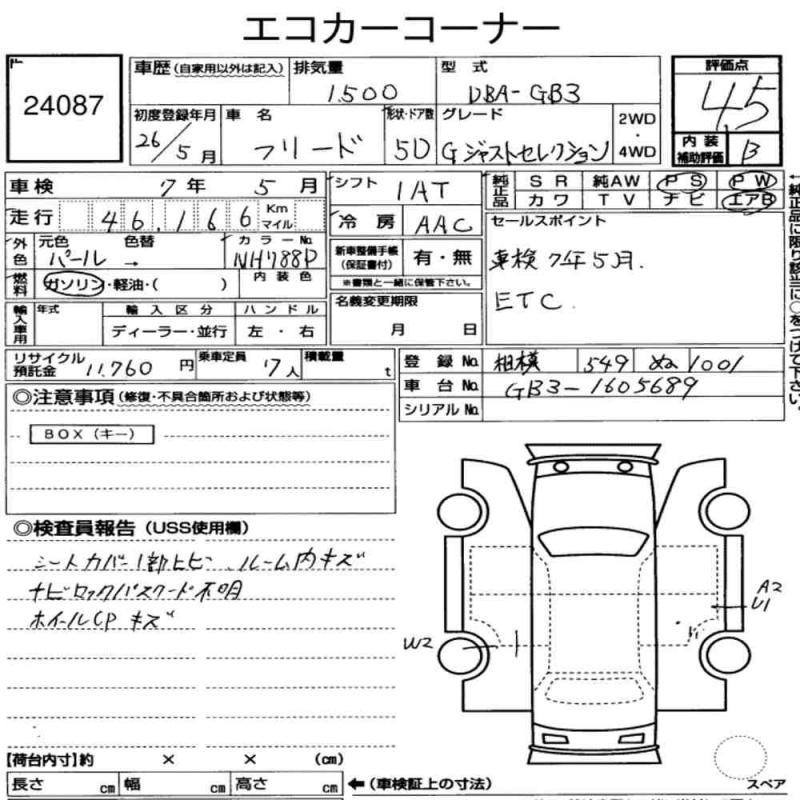 エコカーコーナー
24087
車歴 (自家用以外は記入)
排気量
1500
型 式
DBA-GB3
評価点
4.5
初度登録年月
26/5月
車 名
フリード
形状・ドア数
5D
グレード
Gジャストセレクション
2WD
・
4WD
内 装
補助評価
B
車検 7年 5月
シフト 1AT
純正品
S R 純AW P S P W
カ ワ T V ナ ビ エアB
走行 46,166 Km
マイル
冷 房 AAC
セールスポイント
車検 7年5月.
ETC
外色
元色 色替
パール →
カラーNo.
NH788P
新車整備手帳
(保証書付)
有・無
※書類と一緒に保管下さい。
燃料
ガソリン・軽油・( )
内 装 色
名義変更期限
月 日
輸入車用
年式
輸 入 区 分
ハ ン ド ル
ディーラー・並行
左 ・ 右
リサイクル
預託金 11,760 円
乗車定員 7人
積載量 t
登 録 No. 相模 549 ぬ 1001
車 台 No. GB3-1605689
シリアルNo.
←純正品に限り該当に○をつけて下さい。
◎注意事項 (修復・不具合箇所および状態等)
BOX (キー)
◎検査員報告 (USS使用欄)
シートカバー1部上ヒビ、ルーム内キズ
ナビロックパスワード不明
ホイールCP キズ
A2
U1
W2
【荷台内寸】約 × × (cm)
長さ cm 幅 cm 高さ cm
←(車検証上の寸法)
スペア